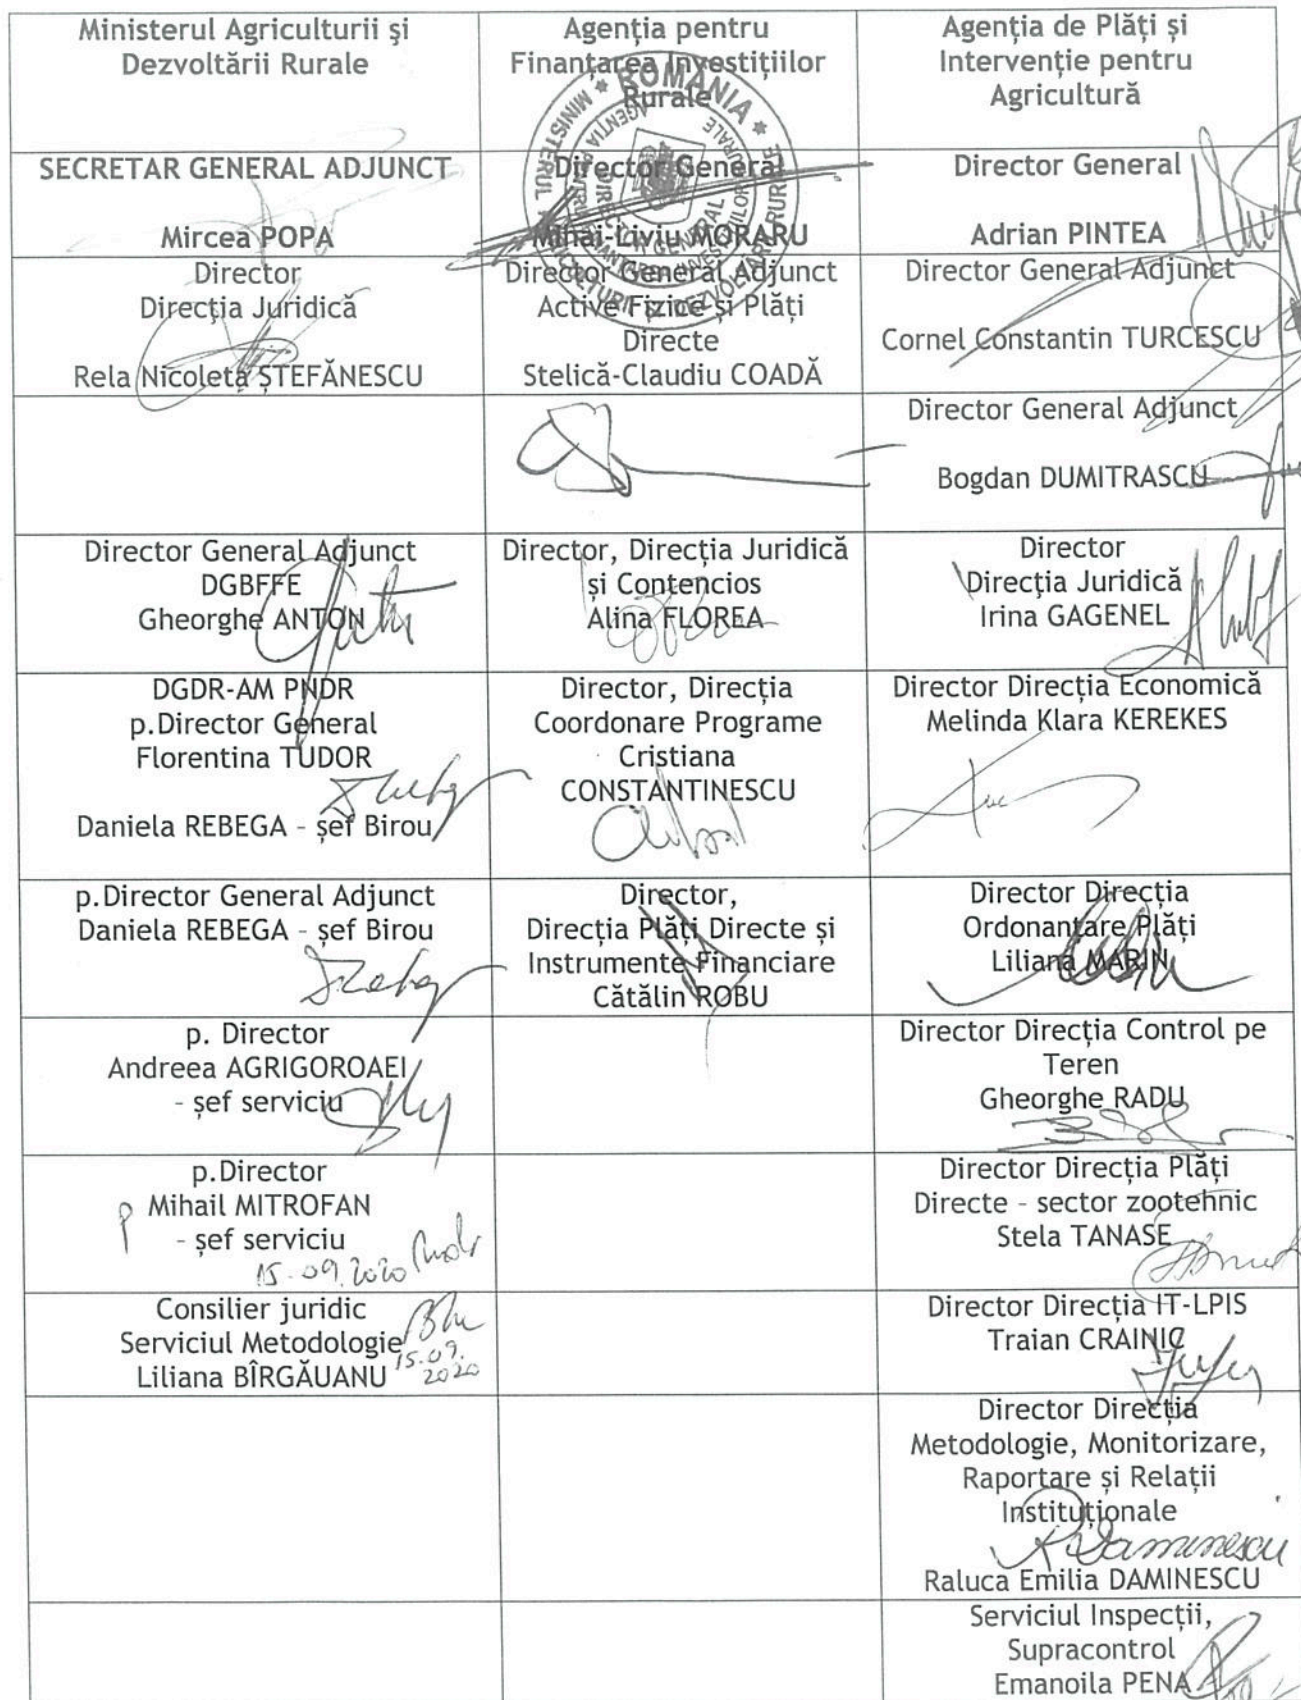 Ministerul Agriculturii şi
Dezvoltării Rurale
Agenția pentru
Finanțarea Investițiilor
Rurale
Agenția de Plăți și
Intervenție pentru
Agricultură
SECRETAR GENERAL ADJUNCT
Mircea POPA
Director General
Mihai-Liviu MORARU
Director General
Adrian PINTEA
Director
Direcţia Juridică
Rela Nicoleta ȘTEFĂNESCU
Director General Adjunct
Active Fizice și Plăți
Directe
Stelică-Claudiu COADĂ
Director General Adjunct
Cornel Constantin TURCESCU
Director General Adjunct
Bogdan DUMITRASCU
Director General Adjunct
DGBFFE
Gheorghe ANTON
Director, Direcția Juridică
și Contencios
Alina FLOREA
Director
Direcţia Juridică
Irina GAGENEL
DGDR-AM PNDR
p.Director General
Florentina TUDOR
Daniela REBEGA - șef Birou
Director, Direcția
Coordonare Programe
Cristiana
CONSTANTINESCU
Director Direcția Economică
Melinda Klara KEREKES
p.Director General Adjunct
Daniela REBEGA - șef Birou
Director,
Direcția Plăți Directe și
Instrumente Financiare
Cătălin ROBU
Director Direcția
Ordonanțare Plăți
Liliana MARIN
p. Director
Andreea AGRIGOROAEI
- șef serviciu
Director Direcția Control pe
Teren
Gheorghe RADU
p.Director
Mihail MITROFAN
- șef serviciu
15.09.2020
Director Direcția Plăți
Directe - sector zootehnic
Stela TANASE
Consilier juridic
Serviciul Metodologie
Liliana BÎRGĂUANU
15.09.
2020
Director Direcția IT-LPIS
Traian CRAINIC
Director Direcția
Metodologie, Monitorizare,
Raportare și Relații
Instituționale
Raluca Emilia DAMINESCU
Serviciul Inspecții,
Supracontrol
Emanoila PENA
ROMÂNIA